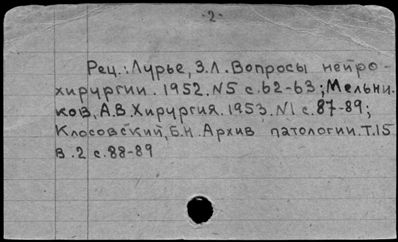 ·2·
Рец.: Лурье, З.Л. Вопросы нейро-
хирургии. 1952. N5 с.62-63; Мельни-
ков, А.В. Хирургия. 1953. N1 с.87-89;
Клосовский, Б.Н. Архив патологии. Т.15
в.2 с.88-89